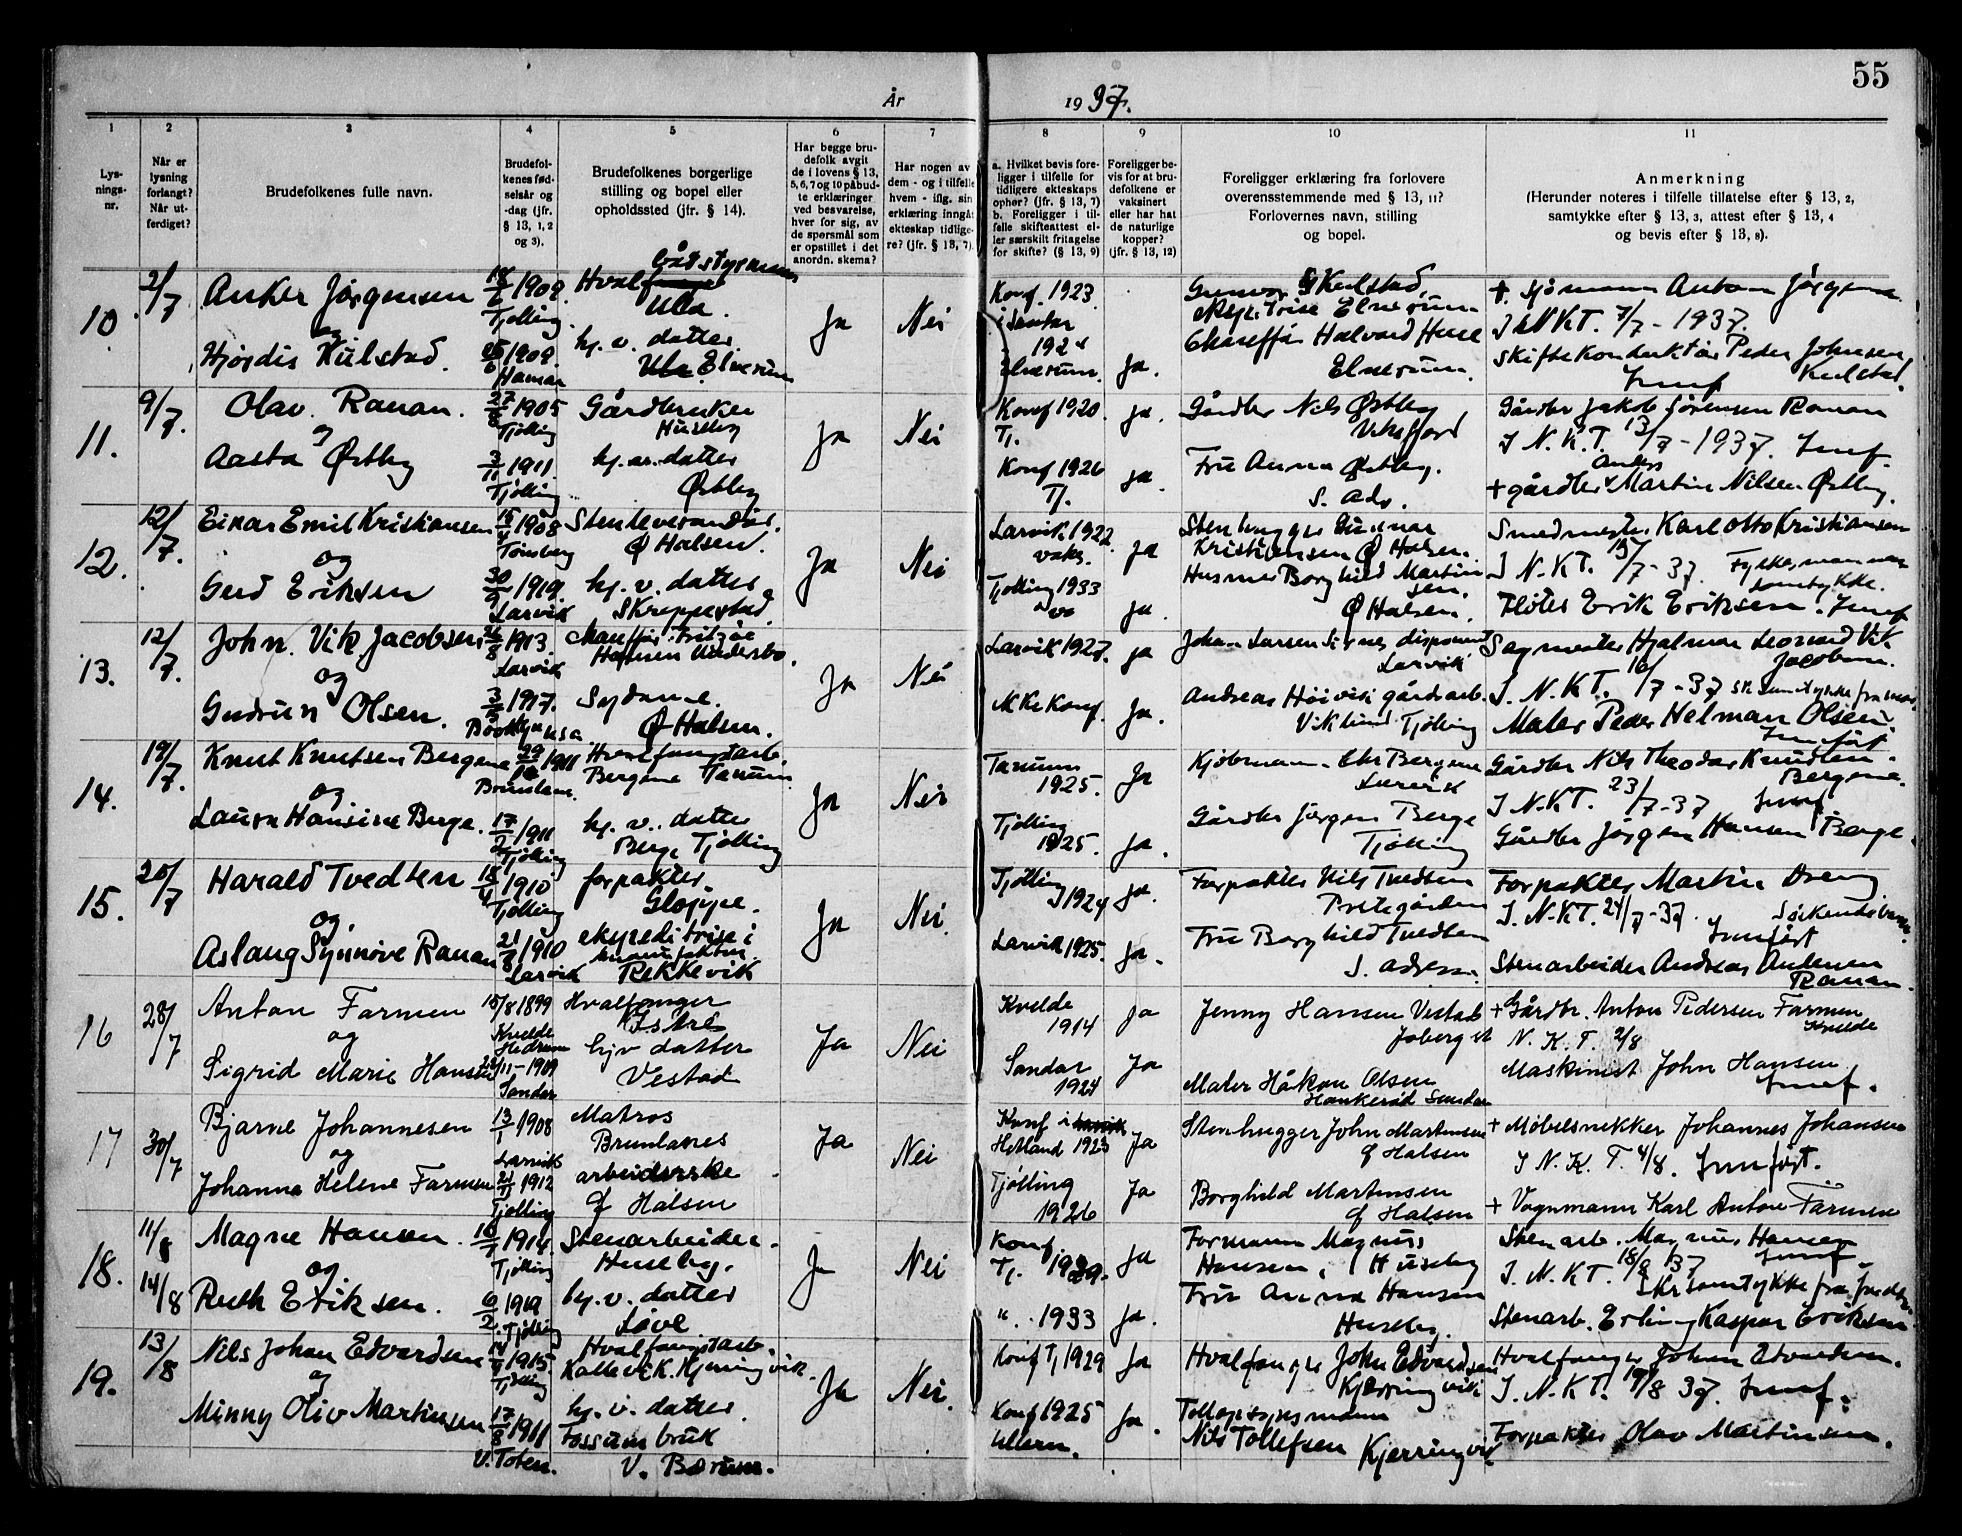 55
År 1937.
1
2
3
4
5
6
7
8
9
10
11
Lys-
nings-
nr.
Når er
lysning
forlangt?
Når ut-
ferdiget?
Brudefolkenes fulle navn.
Brudefol-
kenes fød-
selsår og
-dag (jfr.
§ 13, 1, 2
og 3).
Brudefolkenes borgerlige
stilling og bopel eller
opholdssted (jfr. § 14).
Har begge bru-
defolk avgit
de i lovens § 13,
5, 6, 7 og 10 påbud-
te erklæringer
ved besvarelse,
hver for sig, av
de spørsmål som
er opstillet i det
anordn. skema?
Har nogen av
dem - og i tilfelle
hvem - iflg. sin
erklæring inngått
ekteskap tidlige-
re? (jfr. § 13, 7).
a. Hvilket bevis fore-
ligger i tilfelle for
tidligere ekteskaps
ophør? (jfr. § 13, 7)
b. Foreligger i til-
felle skifteattest el-
ler særskilt fritagelse
for skifte? (§ 13, 9)
Foreligger be-
vis for at bru-
defolkene er
vaksinert
eller har hat
de naturlige
kopper?
(jfr. § 13, 12)
Foreligger erklæring fra forlovere
overensstemmende med § 13, 11?
Forlovernes navn, stilling
og bopel.
Anmerkning
(Herunder noteres i tilfelle tillatelse efter § 13, 2,
samtykke efter § 13, 3, attest efter § 13, 4
og bevis efter § 13, 8).
10. 2/7 Anker Jørgensen 1909. Hval båtstyrmann
Tjølling Ula.
og
Hjørdis Kulstad. 1909. hj. v. datter
Hamar Ula Elverum
Ja Nei
Konf. 1923
i Sandar
Elverum. Ja.
Gunvor Kulstad,
Elverum
Halvard
Elverum.
+ sjömann Anton Jørgensen
I N K T. 7/7 - 1937.
Skiftekonduktør Peder Johnsen
Kulstad.
11. 9/7. Olav Ranan. 27/8 1905 Gårdbruker
Tjølling Huseby
og
Aasta Østby 3/11 1911 hj. v. datter
Tjølling Østby
Ja Nei
Konf 1920. Ja.
Tj.
Konf 1926 Ja.
Tj.
Gårdbr Nils Østby
Viksfjord
Fru Anna Østby.
S. adr.
Gårdbr Jakob Sørensen Ranan
I N.K.T. 13/7 - 1937. Innf.
Anders
+ gårdbr Martin Nilsen Østby.
12. 12/7. Einar Emil Kristiansen 1908 Stenleverandør.
Tønsberg Ø Halsen.
og
Gerd Eriksen 30/9 1919 hj. v. datter
Larvik Skreppestad
Ja Nei
Larvik 1922 Ja
vaks.
Tjølling 1933 Ja.
Stenhugger Gunnar
Kristiansen Ø Halsen.
Husmor Borghild Martin
sen.
Ø Halsen.
Smedmester Karl Otto Kristiansen
I N.KT. 15/7 - 37. Fylkesmannens
samtykke.
Fløter Erik Eriksen. Innf
13. 12/7. John Vik Jacobsen 1913. Chauffør Fritzøe
Larvik Hansen
og
Gudrun Olsen. 3/5 1917. Sydame.
Brooklyn USA Ø Halsen.
Ja Nei
Larvik 1927. Ja
Ikke Konf. Ja.
Johan Larsen disponent
Larvik
Andreas Høivik gårdsarb.
Viklund Tjølling
Sagmester Hjalmar Leonard Vik
Jacobsen.
I. N.KT. 16/7 - 37 Sk samtykke fra mor.
Maler Peder Helman Olsen
Innført
14. 19/7. Knut Knutsen Bergene 1911 Hvalfangstarb.
Brunlanes. Bergene Tanum
og
Laura Hansine Berge. 17/2 1911 hj. v. datter
Tjølling Berge Tjølling
Ja Nei
Tanum Ja
1925.
Tjølling
1925. Ja.
Kjøbmann Chr Bergene
Larvik
Gårdbr Jørgen Berge
Tjølling
Gårdbr Nils Theodor Knudsen
Bergene.
I N.KT. 23/7 - 37 Innf.
Gårdbr Jørgen Hansen Berge.
15. 20/7 Harald Tvedten 1910 forpakter.
Tjølling Gloppe.
og
Aslaug Synnøve Ranan 21/8 1910 ekspeditrise i
manufaktur.
Larvik Rekkevik
Ja Nei.
Tjølling Ja.
1924
Larvik 1925. Ja.
Forpakter Nils Tvedten
Prestegården
Fru Borghild Tvedten
S. adresse.
Forpakter Martin Dreng
I. N.KT. 24/7 - 37.
Innført
Stenarbeider Andreas Andersen
Ranan.
16 28/7 Anton Farmen 15/8 1899 Hvalfanger
Kvelde Istre
Hedrum
og hjv datter
Sigrid Marie Hansen /11 - 1909 Vestad
Sandar
Ja Nei
Kvelde Ja
1914
Sandar Ja
1924
Jenny Hansen Vestad
Maler Håkon Olsen
Haukerød Sandar
+ Gårdbr. Anton Pedersen Farmen
Kvelde
N. K. T. 2/8
Maskinist John Hansen
Innf.
17 30/7 Bjarne Johannesen 13/1 1908 Matros
Larvik Brunlanes
og
Johanna Helene Farmen 21/11 1912 arbeiderske
Tjølling Ø Halsen
Ja Nei
Konf i
Hetland 1923 Ja
Tjølling Ja
1926
Stenhugger John Martinsen
Ø Halsen
Borghild Martinsen
Ø Halsen
+ Møbelsnekker Johannes Johansen
I N. K. T. 4/8. Innført.
+ Vognmann Karl Anton Farmen
18. 11/8 Magne Hansen. 1914. Stenarbeider.
Tjølling Huseby.
og
14/8 Ruth Eriksen. 6/2 1919 hj. v. datter
Tjølling Løve
Ja Nei
Konf
Tj. 1929. Ja
" . 1933 Ja.
Formann Magnus
Hansen, Huseby
Fru Anna Hansen
Huseby.
Stenarb. Magnus Hansen
I. N. K T. 18/8 37 Innf
Skr samtykke fra foreldre.
Stenarb. Erling Kaspar Eriksen
19. 13/8 Nils Johan Edvardsen 1915. Hvalfangstarb.
Tjølling Kallevik. Kjerringvik.
og
Minny Oliv Martinsen 17/8 1911 hj. v. datter
Fossum bruk
V. Toten. V. Bærum.
Ja Nei.
Konf Tj 1929 Ja
Konf 1925 Ja.
Ullern.
Hvalfanger John Edvardsen
Kjærringvik
Nils Tollefsen Kjerringvik
Hvalfanger Johan Edvardsen.
I. N.KT. 19/8 37. Innf.
Forpakter Olav Martinsen.